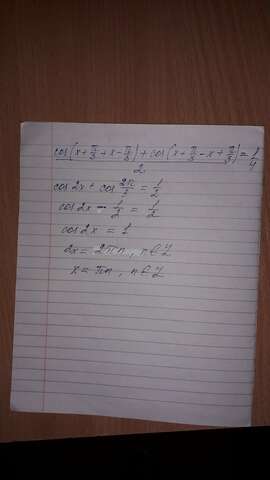 cos(x+π/3+x-π/3)+cos(x+π/3-x+π/3)/2=1/4
cos2x+cos 2π/3=1/2
cos2x-1/2=1/2
cos2x=1
2x=2πn, n∈Z
x=πn, n∈Z